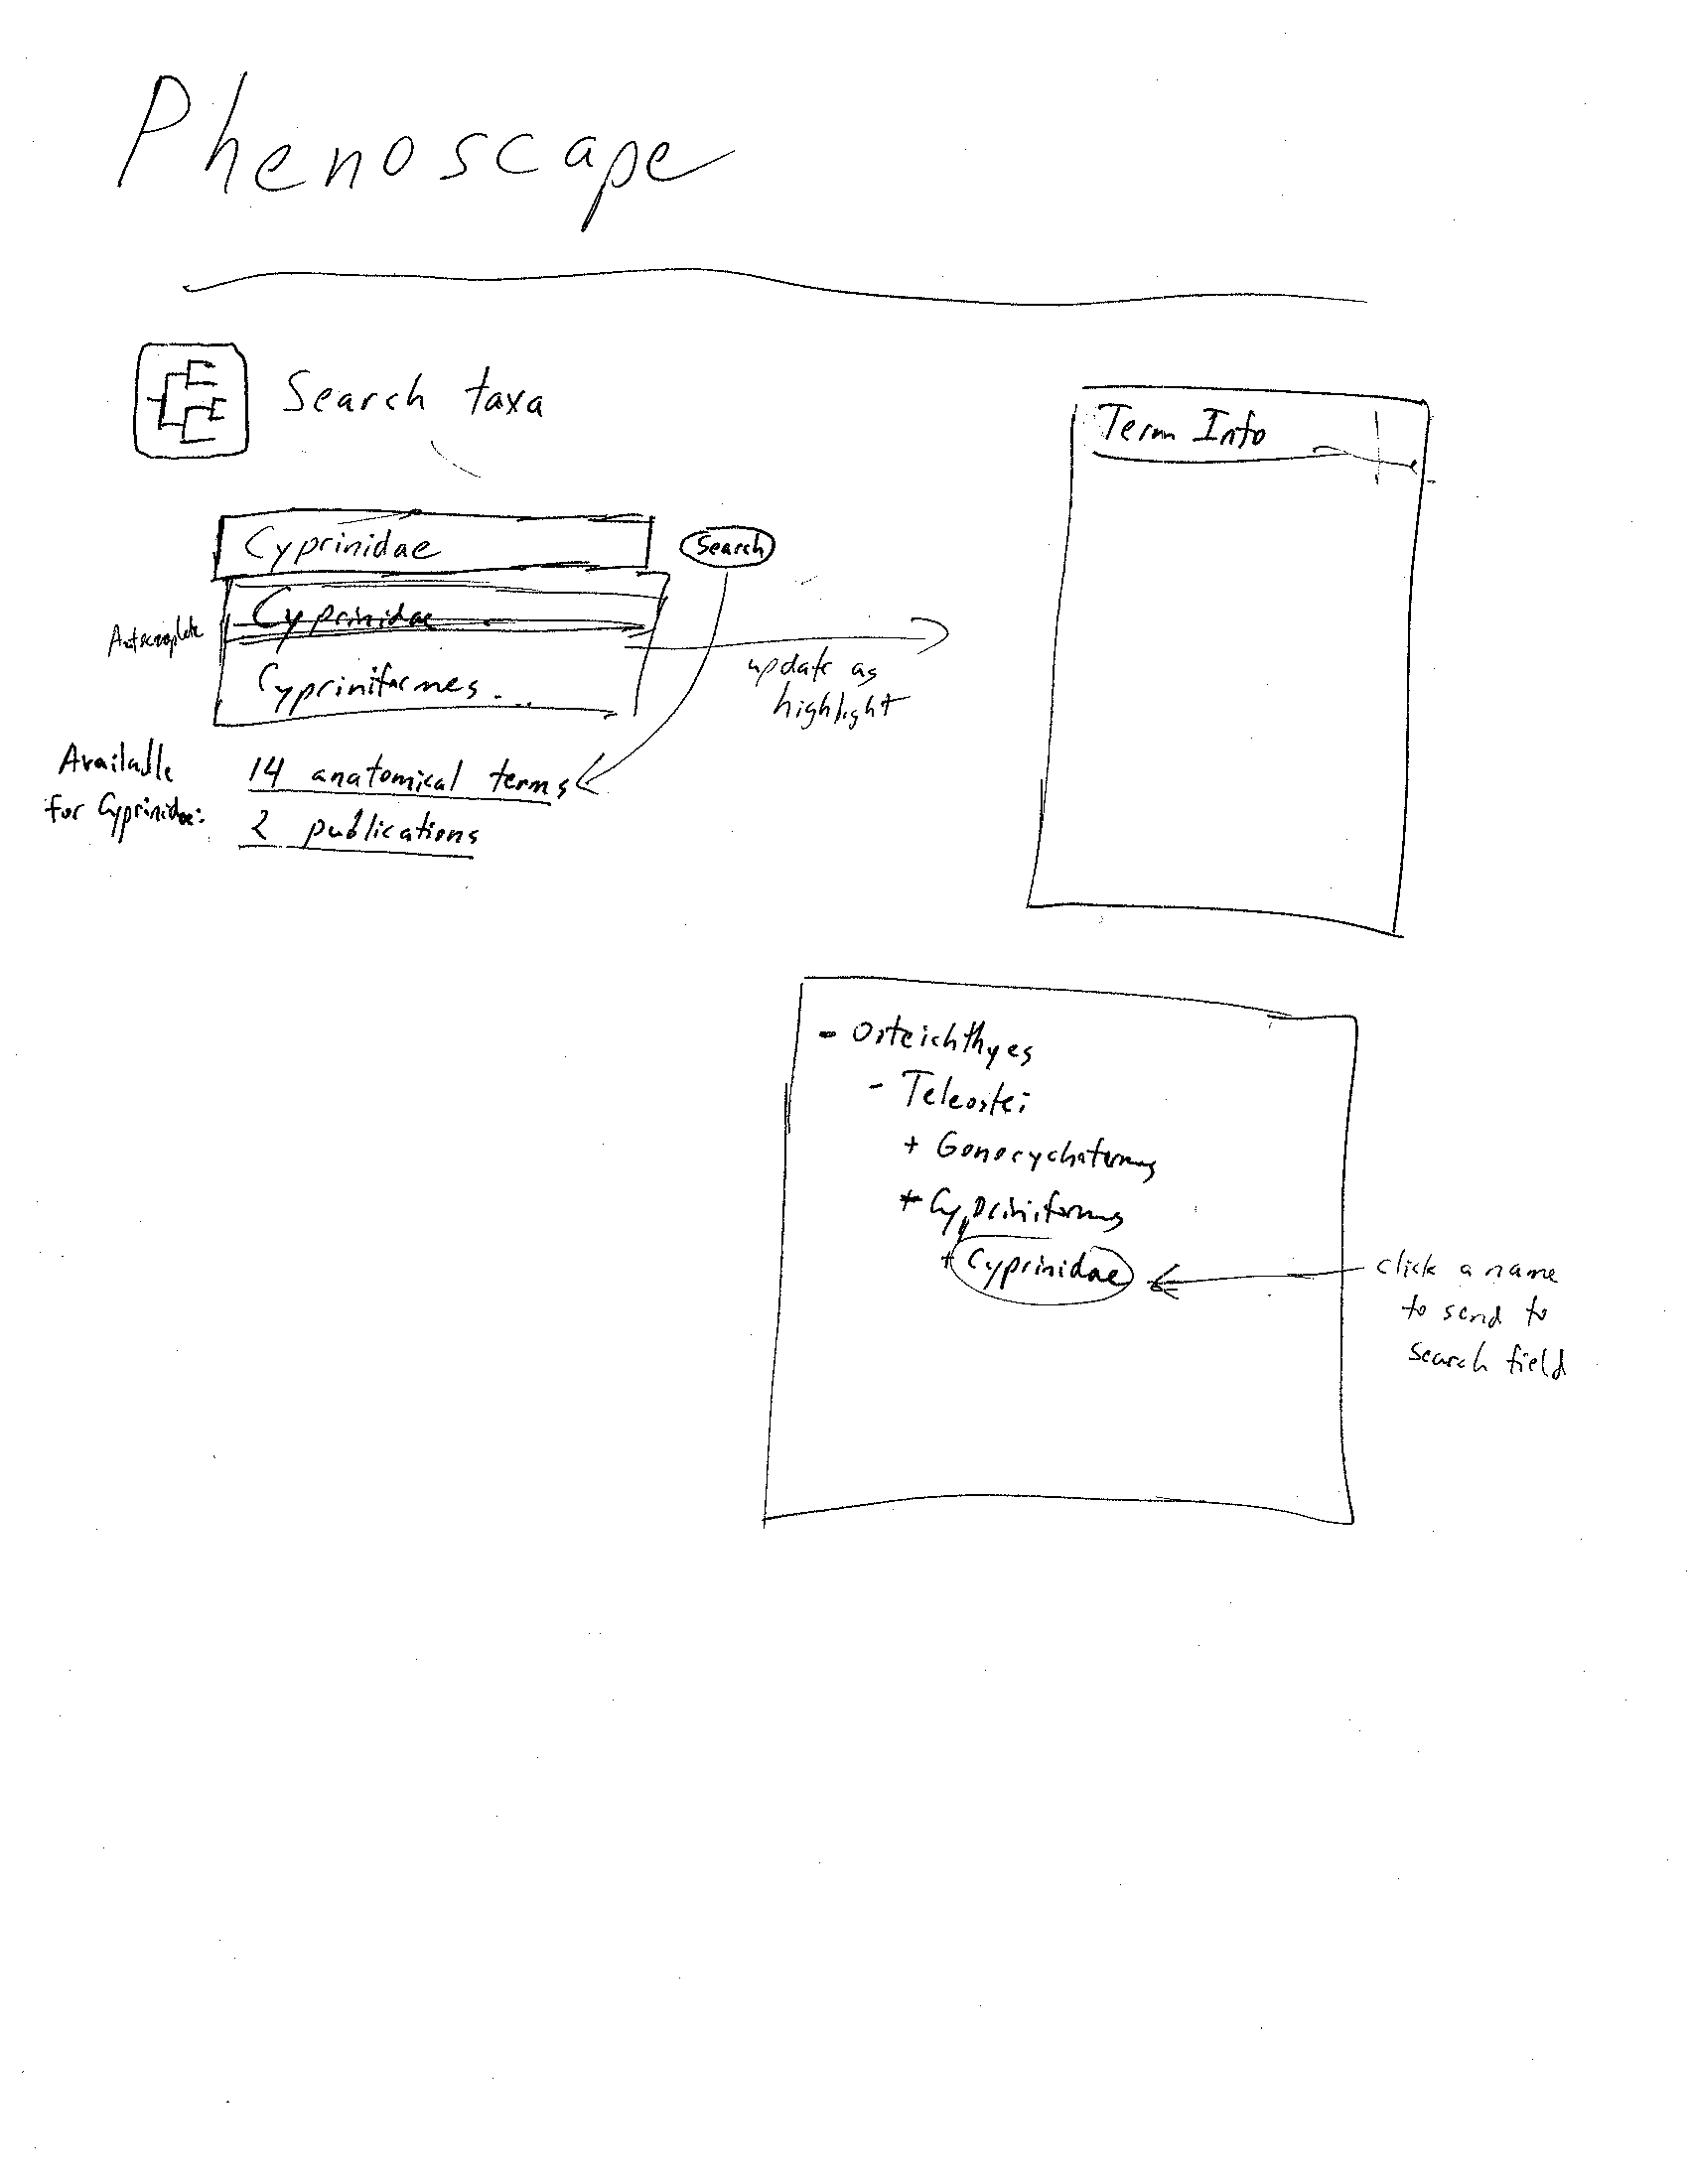 Phenoscape
Search taxa
Term Info
Cyprinidae
Search
Autocomplete
Cyprinidae
Cypriniformes...
update as
highlight
Available
for Cyprinidae:
14 anatomical terms
2 publications
- Osteichthyes
- Teleostei
+
+ Cypriniformes
+ Cyprinidae
click a name
to send to
search field